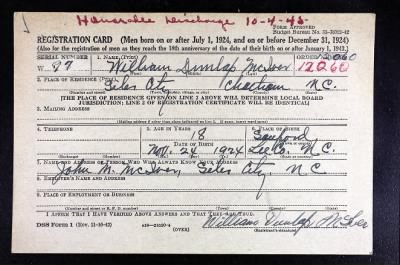 Honorable Discharge 10-4-45
FORM APPROVED
REGISTRATION CARD (Men born on or after July 1, 1924, and on or before December 31, 1924)
(Also for the registration of men as they reach the 18th anniversary of the date of their birth on or after January 1, 1943.)
SERIAL NUMBER 1. NAME (Print) ORDER NUMBER
97 William Dunlap McIver 12060
2. PLACE OF RESIDENCE (Print)
Siler City Chatham N.C.
[THE PLACE OF RESIDENCE GIVEN ON LINE 2 ABOVE WILL DETERMINE LOCAL BOARD
JURISDICTION; LINE 2 OF REGISTRATION CERTIFICATE WILL BE IDENTICAL]
3. MAILING ADDRESS
4. TELEPHONE 5. AGE IN YEARS 6. PLACE OF BIRTH
18 Sanford
DATE OF BIRTH
Nov. 24 1924 Lee Co. N.C.
7. NAME AND ADDRESS OF PERSON WHO WILL ALWAYS KNOW YOUR ADDRESS
John M. McIver, Siler City, N.C.
8. EMPLOYER'S NAME AND ADDRESS
9. PLACE OF EMPLOYMENT OR BUSINESS
I AFFIRM THAT I HAVE VERIFIED ABOVE ANSWERS AND THAT THEY ARE TRUE.
DSS Form 1 (Rev. 11-16-42) (OVER) William Dunlap McIver
(Registrant's signature)